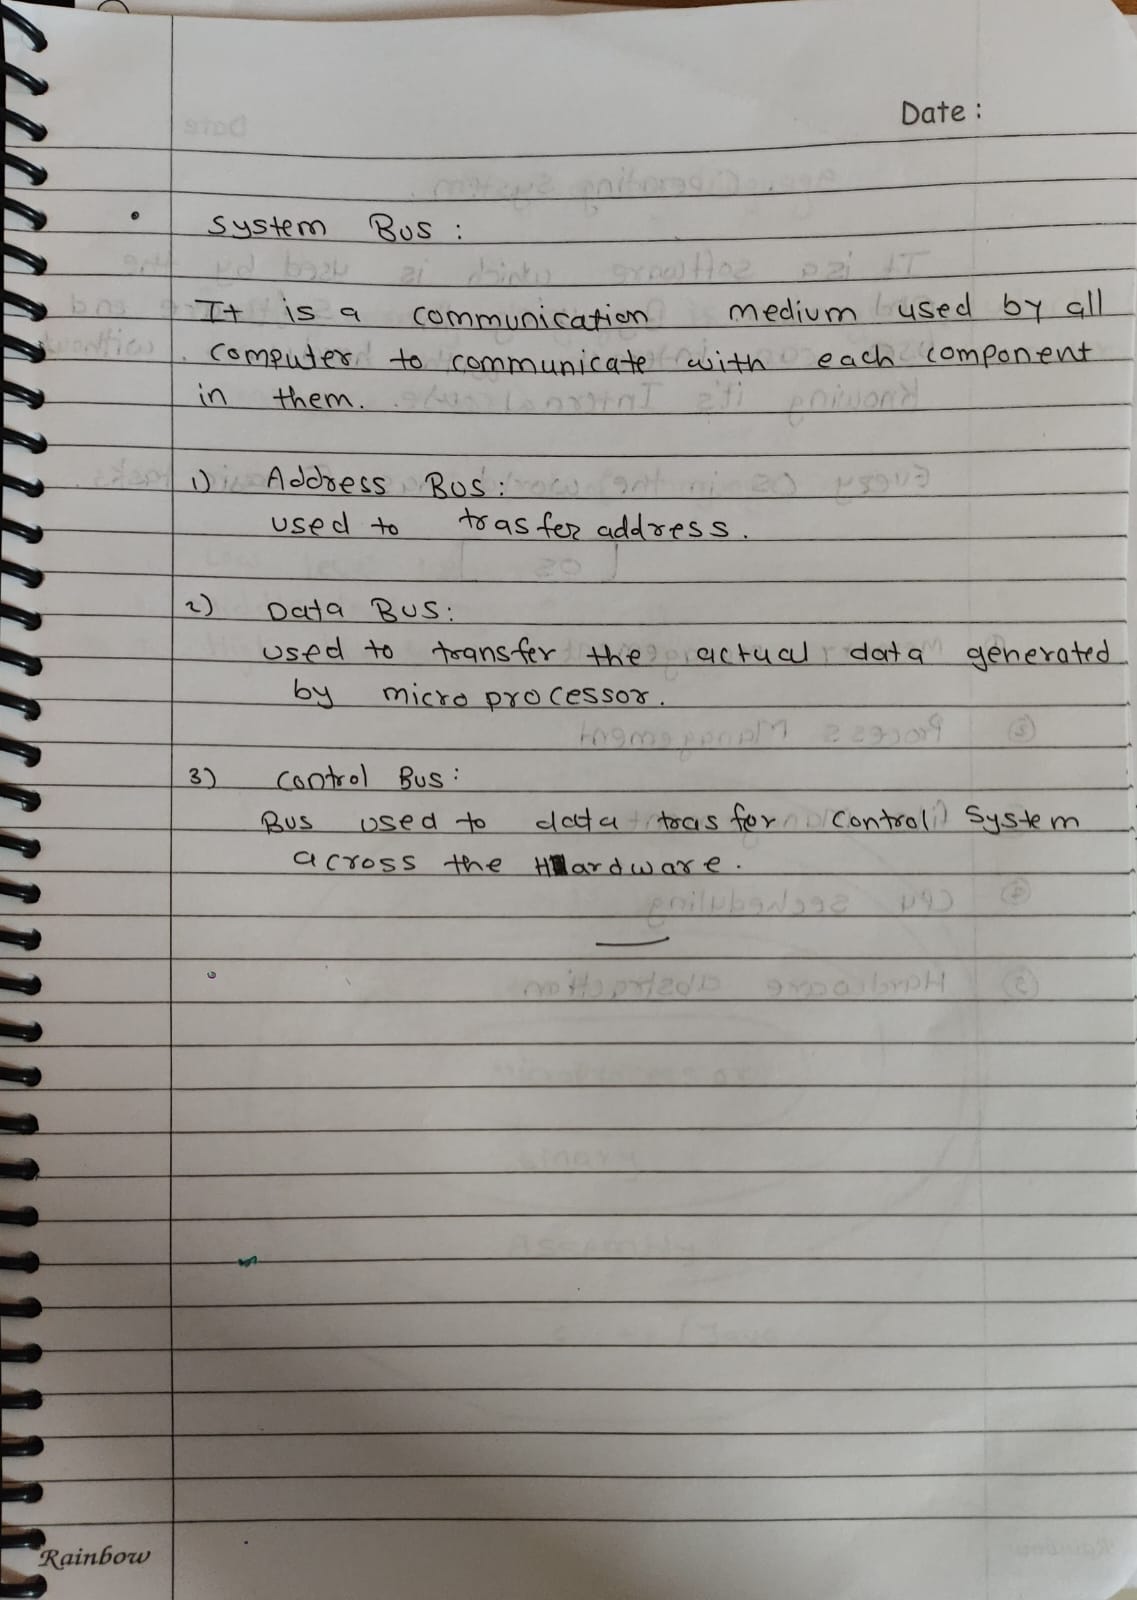 Date :
• System Bus :
It is a communication medium used by all
computer to communicate with each component
in them.
1) Address Bus :
used to trasfer address.
2) Data Bus:
used to transfer the actual data generated
by microprocessor.
3) Control Bus :
Bus used to data trasfer control System
across the Hardware.
Rainbow